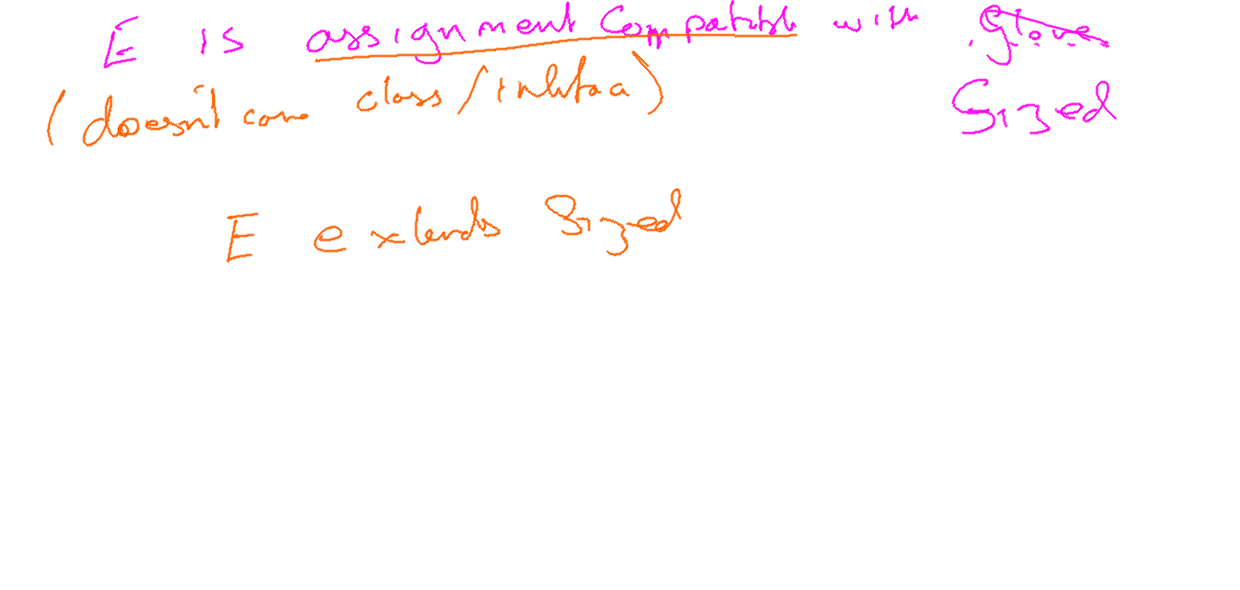 E is assignment compatible with Glove
Sized
(doesn't care class/interface)
E extends Sized